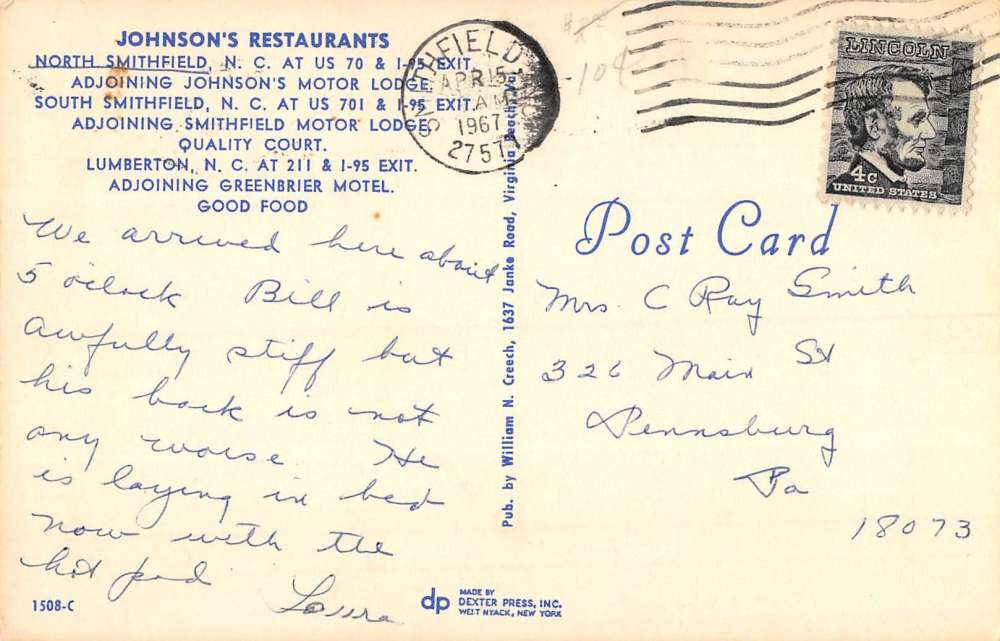 JOHNSON'S RESTAURANTS
NORTH SMITHFIELD, N. C. AT US 70 & I-95 EXIT.
ADJOINING JOHNSON'S MOTOR LODGE.
SOUTH SMITHFIELD, N. C. AT US 701 & I-95 EXIT.
ADJOINING SMITHFIELD MOTOR LODGE
QUALITY COURT.
LUMBERTON, N. C. AT 211 & I-95 EXIT.
ADJOINING GREENBRIER MOTEL.
GOOD FOOD
We arrived here about
5 oclock Bill is
awfully stiff but
his back is not
any worse. He
is laying in bed
now with the
hot pad
Laura
1508-C
SMITHFIELD N.C.
APR 15
AM
1967
27577
10¢
LINCOLN
4c
UNITED STATES
Pub. by William N. Creech, 1637 Janke Road, Virginia Beach, Va.
Post Card
Mrs. C Ray Smith
326 Main St
Pennsburg
Pa
18073
dp
MADE BY
DEXTER PRESS, INC.
WEST NYACK, NEW YORK